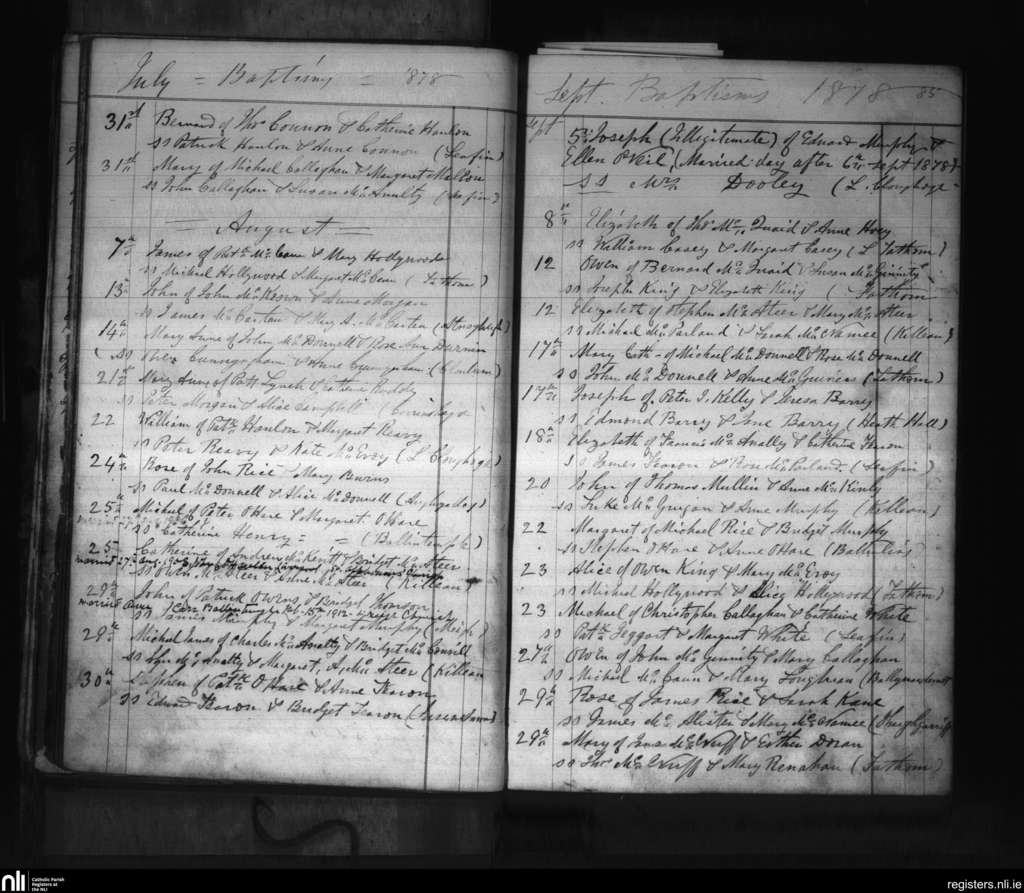 July = Baptisms = 1878
31st Bernard of Thos Connon & Catherine Hanlon
ss Patrick Hanlon & Anne Connon (Leafin)
31st Mary of Michael Callaghan & Margaret Mallon
ss John Callaghan & Susan McAnulty (Leafin)
= August =
7th James of Patk McCann & Mary Hollywood
ss Michael Hollywood & Margaret McCann (Fathom)
13th John of John McKeown & Anne Morgan
ss James McCartan & Mary A. McCartan
14th Mary Anne of John McDonnell & Rose Ann
ss Cunningham & Anne Cunningham
21st Mary Anne of Patk Lynch & Catherine
ss Peter Morgan & Alice Campbell
22 William of Patk Hanlon & Margaret Reavy
ss Peter Reavy & Kate McEvoy (L. Cloghoge)
24th Rose of John Rice & Mary Burns
ss Paul McDonnell & Alice McDonnell
25th Michael of Peter O'Hare & Margaret O'Hare
ss Catherine Henry = = (Ballintemple)
25 Catherine of Andrew McKevitt & Bridget McSteer
married 27th
ss Owen McSteer & Anne McSteer (Killean)
29th John of Patrick Owens & Bridget
married Feb 15th 1912
ss James Murphy & Margaret Murphy (Meigh)
28th Michael James of Charles McAnalty & Bridget McConvill
ss John McAnalty & Margaret McSteer (Killean
30th of Patk O'Hare & Anne Fearon
ss Edward Fearon & Bridget Fearon
Sept. Baptisms 1878 85
Sept 5th Joseph (Illegitimate) of Edward Murphy &
Ellen O'Neil (Married day after 6th Sept 1878)
ss Mrs Dooley (L. Cloughoge
8th Elizabeth of Thos McQuaid & Anne Hoey
ss William Casey & Margaret Casey (L Fathom)
12 Owen of Bernard McQuaid & Susan McGinnity
ss Joseph King & Elizabeth King (Fathom
12 Elizabeth of Stephen McSteer & Mary McSteer
ss Michael McParland & Sarah McNamee (Killean)
17th Mary Cath. of Michael McDonnell & Rose McDonnell
ss John McDonnell & Anne McGuiness (Fathom)
17th Joseph of Peter J. Kelly & Teresa Barry
ss Edmond Barry & Jane Barry (Heath Hall)
18th Elizabeth of Francis McAnalty & Catherine Fearon
ss James Fearon & Rose McParland (Leafin)
20 John of Thomas Mullin & Anne McKinly
ss Luke McGuigan & Anne Murphy (Killean)
22 Margaret of Michael Rice & Bridget Murphy
ss Stephen O'Hare & Anne O'Hare
23 Alice of Owen King & Mary McEvoy
ss Michael Hollywood & Alicy Hollywood (Fathom)
23 Michael of Christopher Callaghan & Catherine White
ss Patk Teggart & Margaret White (Leafin)
27th Owen of John McGinnity & Mary Callaghan
ss Michael McCann & Mary Loughran
29th Rose of James Rice & Sarah Kane
ss James McAlister & Mary McNamee
29th Mary of Jas McEnuff & Esther Doran
ss Thos McEnuff & Mary Renahan (Fathom)
nli Catholic Parish
Registers at
the NLI
registers.nli.ie